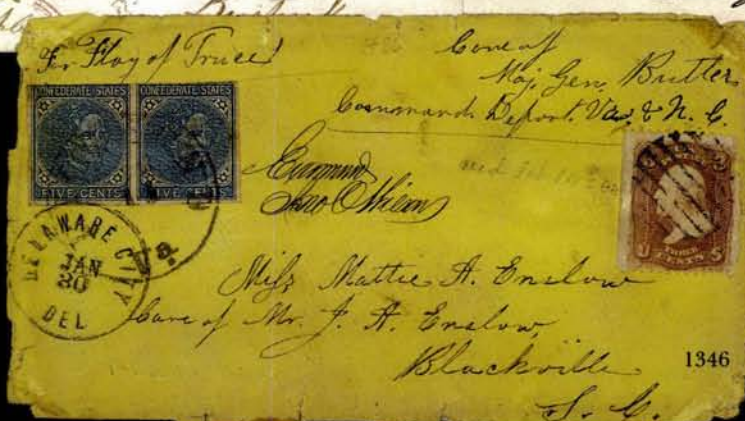 For Flag of Truce
Care of
Maj. Gen. Butler
Command. Depart. Va. & N. C.
CONFEDERATE STATES
FIVE CENTS
CONFEDERATE STATES
FIVE CENTS
Examined
U S
THREE CENTS
DELAWARE CITY
JAN
30
DEL
Va.
Miss Mattie A. Enslow
Care of Mr. J. A. Enslow
Blackville
S. C.
1346